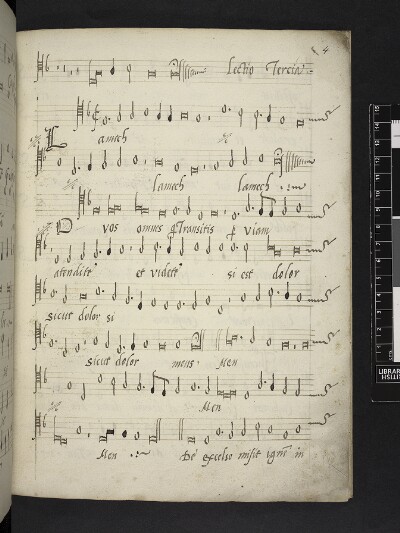 4
Lectio Tercia
Lamech
lamech lamech
O vos omnes q Transitis p Viam
atendite et videte si est dolor
sicut dolor si
sicut dolor meus. Men
Men
Men De excelso misit igne in